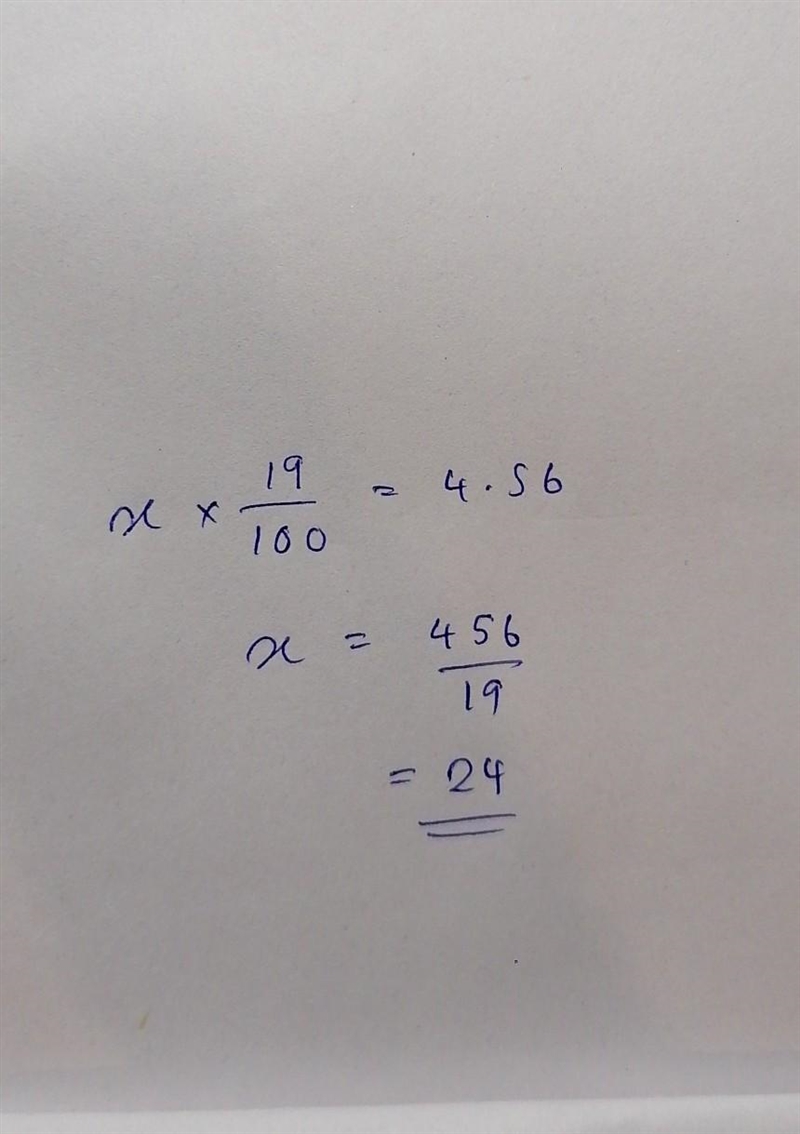 x × 19/100 = 4.56
x = 456/19
= 24